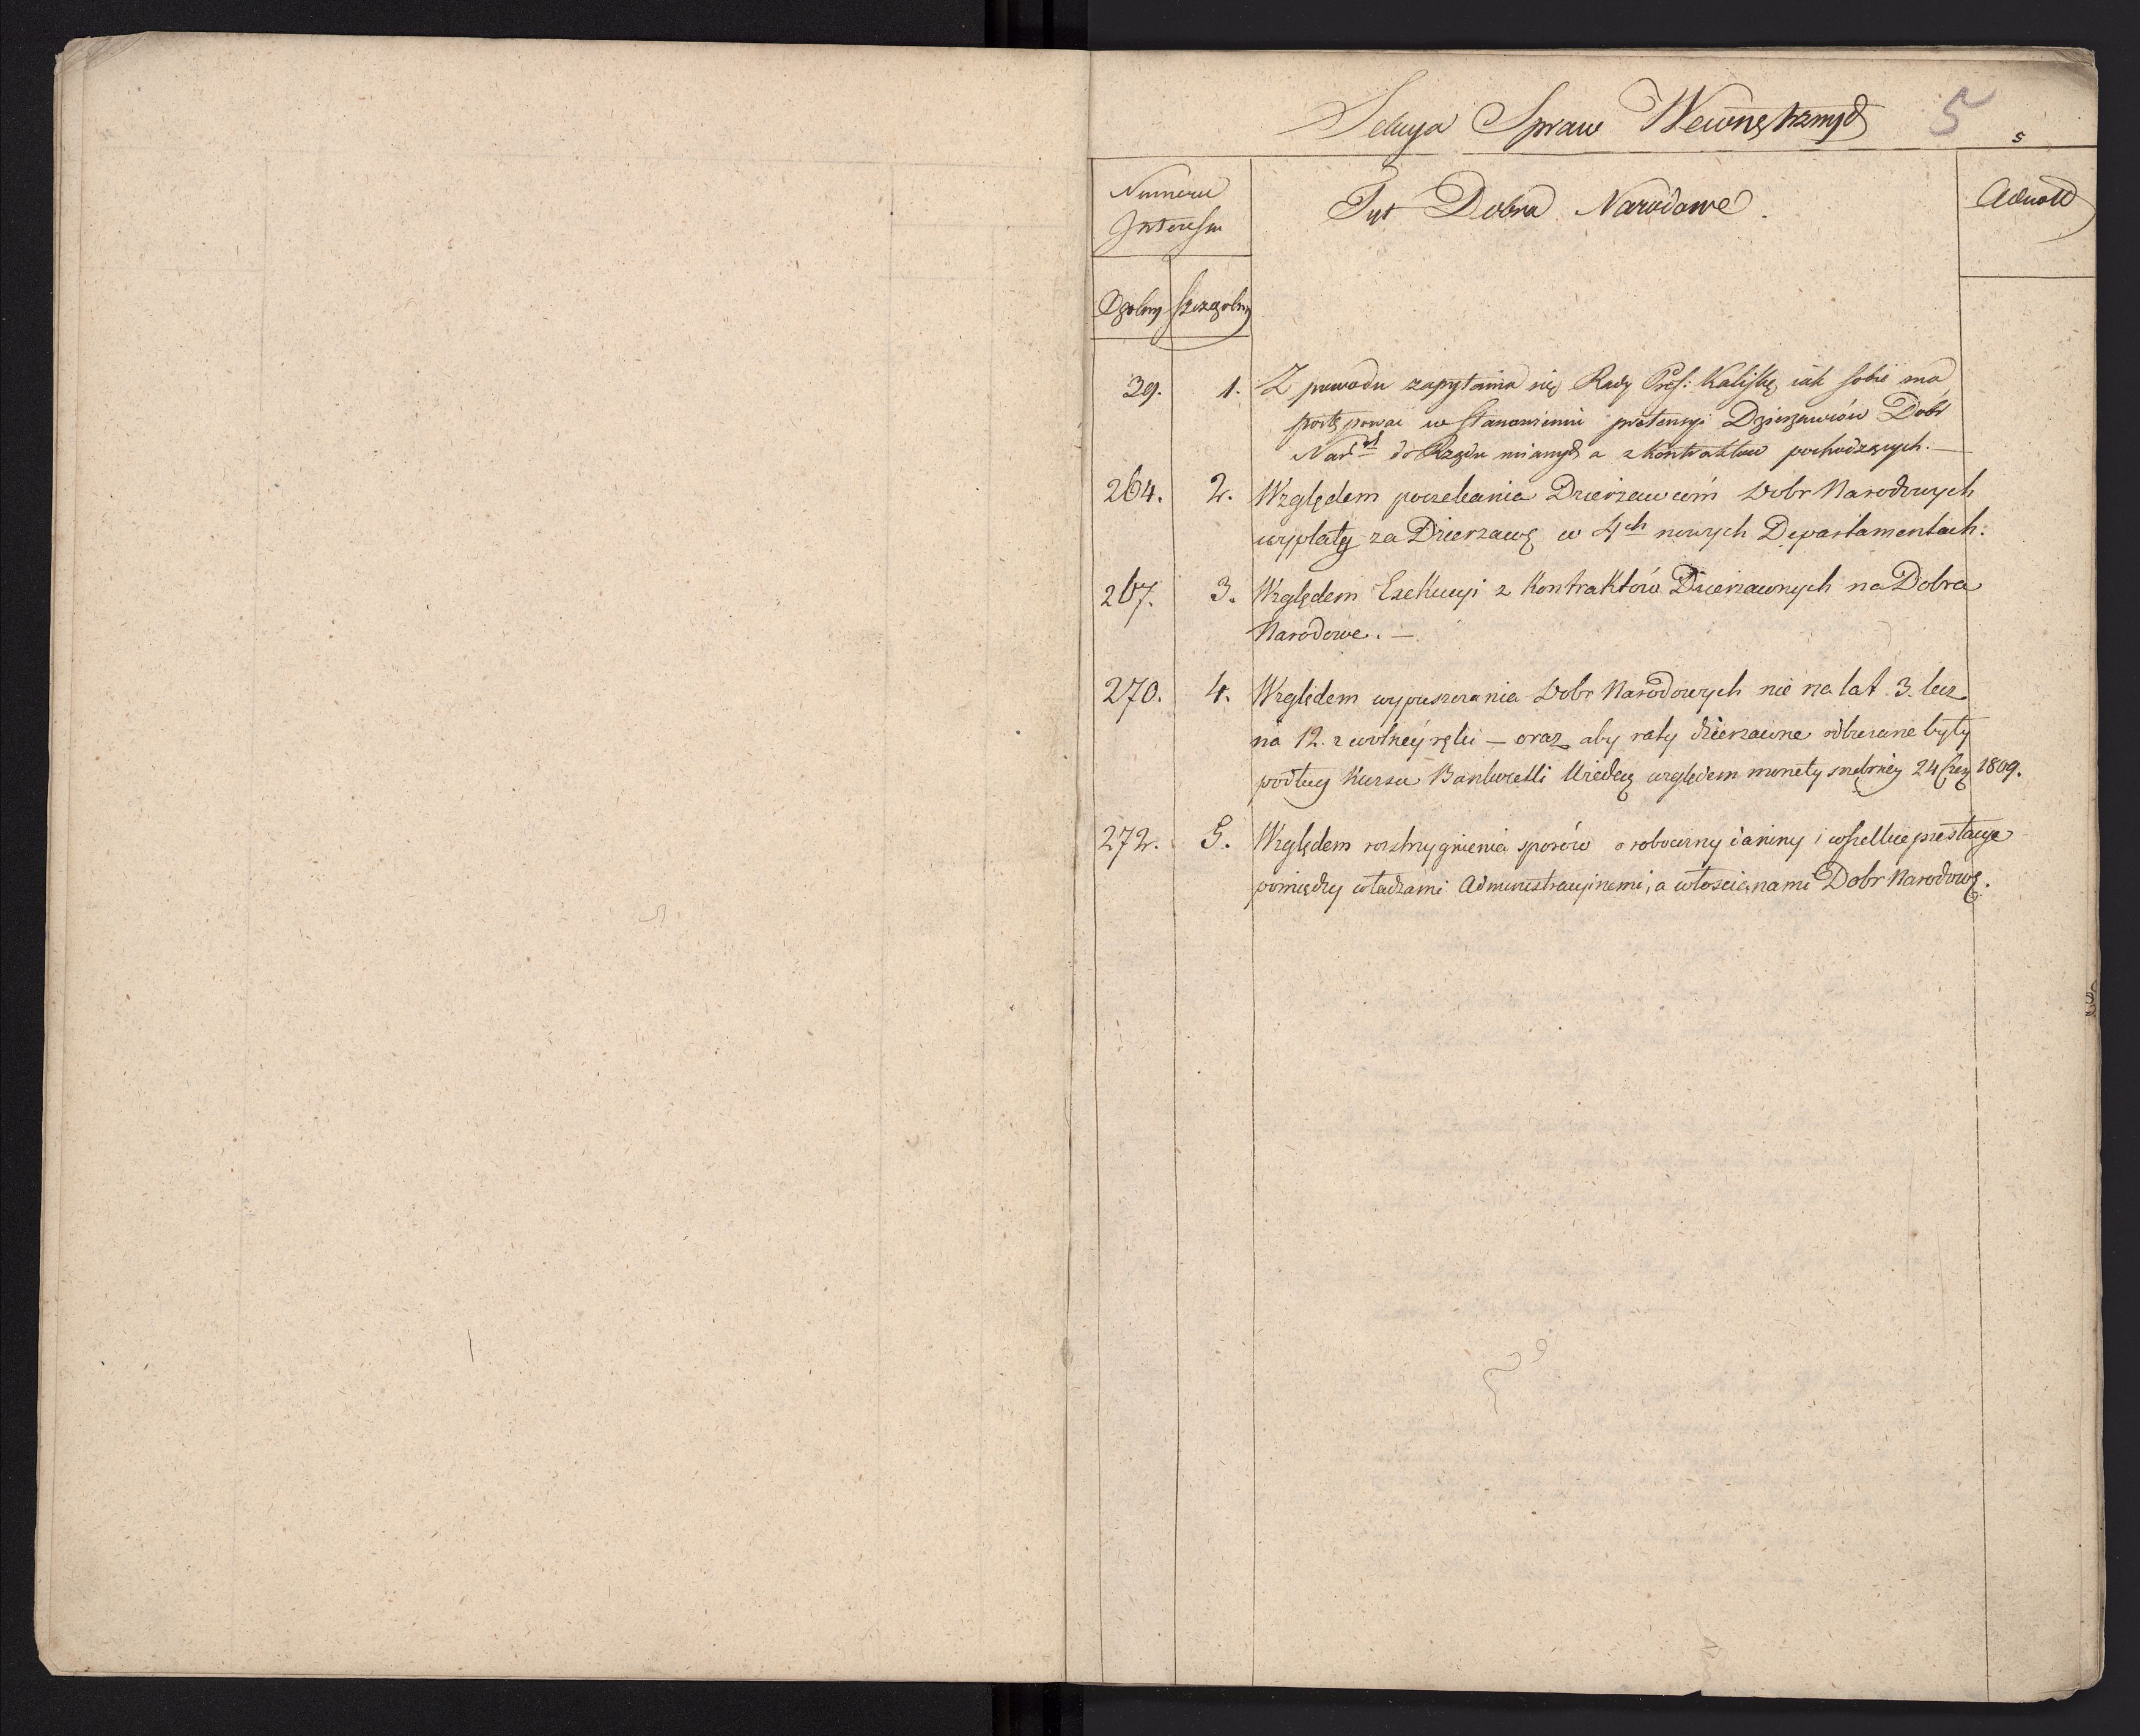 Sekcya Spraw Wewnętrznych
5
5
Numeru
Interessu
Tyt Dobra Narodowe.
Adnott
Ogólny szczególny
39. 1. Z powodu zapytania się Rady Pref: Kaliskę iak sobie ma
postępować w stanowieniu pretensyi Dzierzawców Dóbr
Nar ch do Rządu mianych a z Kontraktów pochodzących. —
264. 2. Względem poczekania Dzierżawcom Dobr Narodowych
wypłaty za Dzierzawę w 4ch nowych Departamentach.
267. 3. Względem Exekucyi z Kontraktów Dzierzawnych na Dobra
Narodowe. —
270. 4. Względem wypuszczania Dobr Narodowych nie na lat 3. lecz
na 12. z wolney ręki — oraz aby raty dzierzawne odbierane były
podług Kursu względem monety srebrney 24 1809.
272. 5. Względem rozstrzygnienia sporów o robocizny daniny i wszelkie prestacye
pomiędzy władzami Administracyinemi, a włościanami Dobr Narodowę.